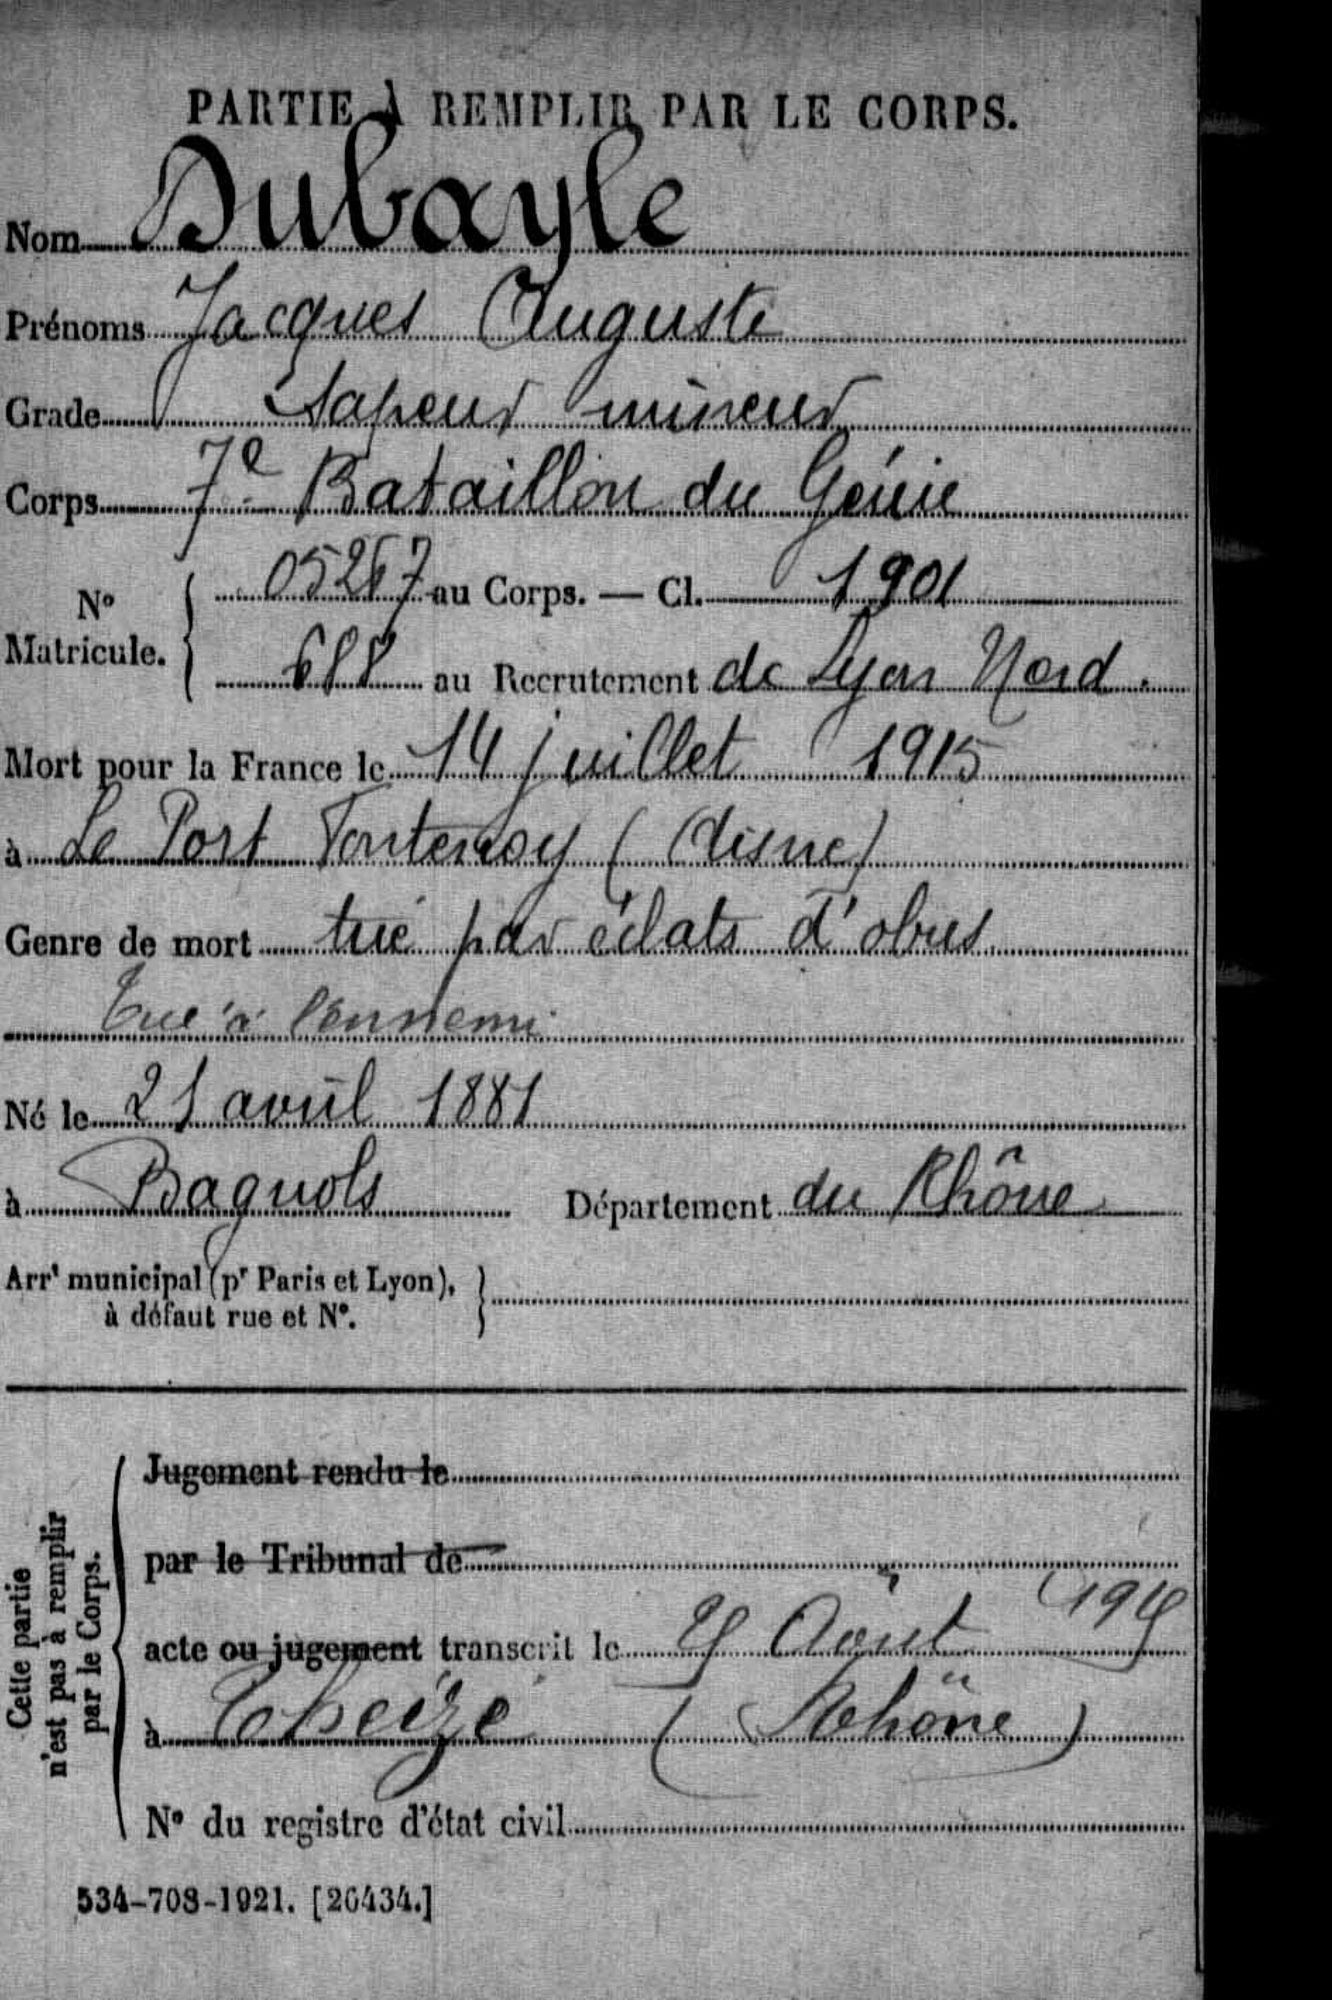 PARTIE À REMPLIR PAR LE CORPS.
Nom Dubayle
Prénoms Jacques Auguste
Grade Sapeur mineur
Corps 7e Bataillon du Génie
No Matricule. 05267 au Corps. — Cl. 1901
688 au Recrutement de Lyon Nord.
Mort pour la France le 14 juillet 1915
à Le Port Fontenoy (Aisne)
Genre de mort tué par éclats d'obus
Tué à l'ennemi
Né le 21 avril 1881
à Bagnols Département du Rhône
Arrt municipal (pr Paris et Lyon),
à défaut rue et No.
Cette partie
n'est pas à remplir
par le Corps.
Jugement rendu le
par le Tribunal de
acte ou jugement transcrit le Août
à Theizé (Rhône)
No du registre d'état civil
534-708-1921. [26434.]